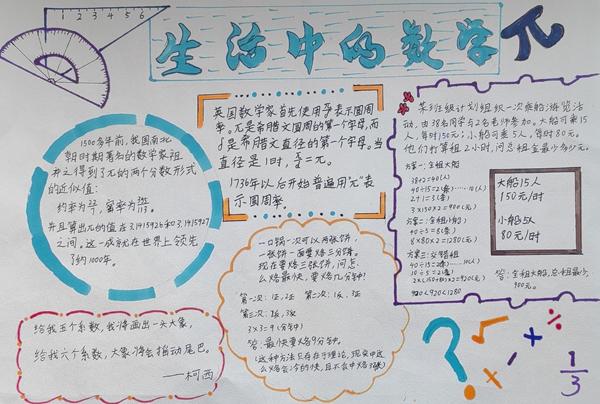 生活中的数学
π
1 2 3 4 5 6
1500多年前，我国南北
朝时期著名的数学家祖
冲之得到了π的两个分数形式
的近似值：
约率为22/7，密率为355/113。
并且算出π的值在3.1415926和3.1415927
之间，这一成就在世界上领先
了约1000年。
英国数学家首先使用π/δ表示圆周
率。π是希腊文圆周的第一个字母，而
δ是希腊文直径的第一个字母。当
直径是1时，π/δ=π。
1736年以后开始普遍用“π”表
示圆周率。
某班级计划组织一次乘船游览活
动，由38名同学与2名老师参加。大船可乘15
人，每时150元；小船可乘5人，每时80元。
他们打算租2小时，问总租金最少多少元。
方案一：全租大船
38+2=40(人)
40÷15=2(条)……10(人)
2+1=3(条)
3×150×2=900(元)
方案二：全租小船
40÷5=8(条)
8×80×2=1280(元)
方案三：
40÷15=2(条)……10(人)
10÷5=2(条)
900<920<1280
大船15人
150元/时
小船5人
80元/时
答：全租大船，总租金最少，
900元。
给我五个系数，我将画出一头大象，
给我六个系数，大象将会摇动尾巴。
——柯西
一口锅一次可以两张饼，
一张饼一面要烙三分钟。
现在要烙三张饼，问怎
么烙最快，要烙几分钟？
第一次：1正，2正 第二次：1反，3正
第三次：2反，3反
3×3=9(分钟)
答：最快要烙9分钟。
(这种方法只存在于理论，现实中这
? √ × + ÷ %
1/3